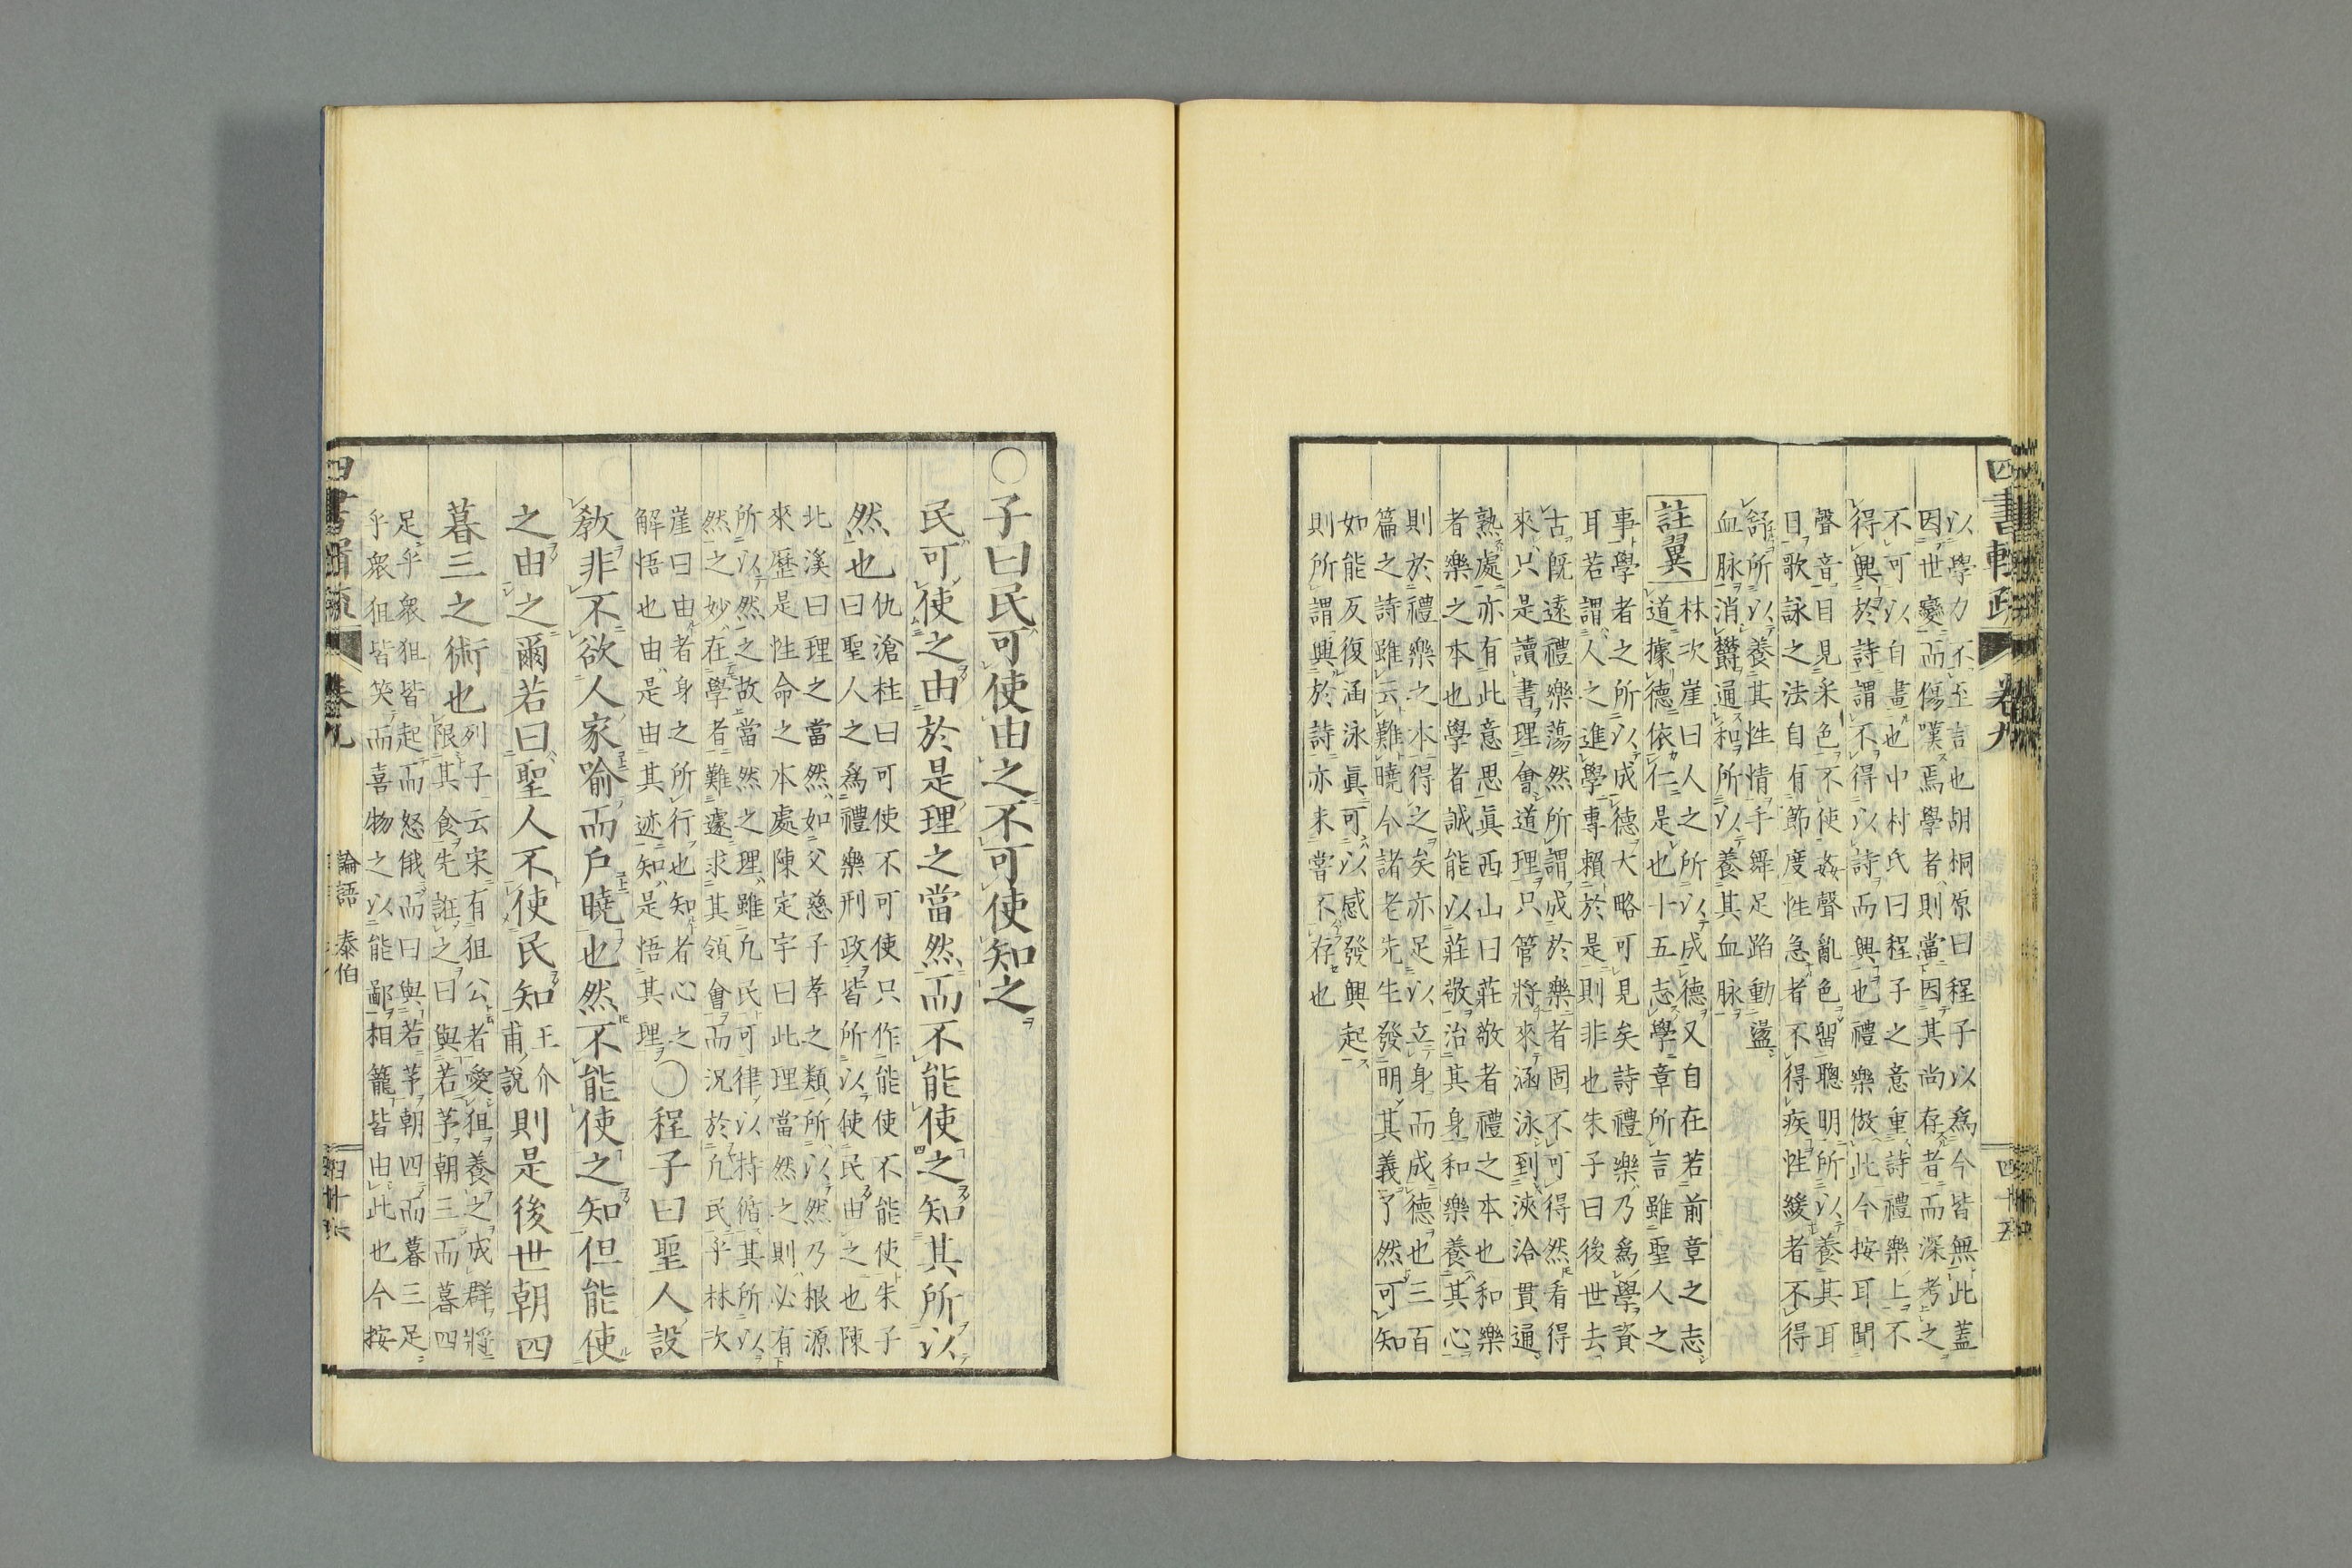 以學力不至言也胡桐原曰程子以爲今皆無此蓋
因世變而傷嘆焉學者則當因其尚存者而深考之
不可以自畫也中村氏曰程子之意重詩禮樂上不
得興於詩謂不得以詩而興也禮樂倣此今按耳聞
聲音目見采色不使姦聲亂色留聰明所以養其耳
目歌詠之法自有節度性急者不得疾性緩者不得
舒所以養其性情手舞足蹈動盪
血脉消欝通和所以養其血脉
註翼
林次崖曰人之所以成德又自在若前章之志
道據德依仁是也十五志學章所言雖聖人之
事學者之所以成德大略可見矣詩禮樂乃爲學資
耳若謂人之進學專賴於是則非也朱子曰後世去
古既遠禮樂蕩然所謂成於樂者固不可得然看得
來只是讀書理會道理只管將來涵泳到浹洽貫通
熟處亦有此意思眞西山曰莊敬者禮之本也和樂
者樂之本也學者誠能以莊敬治其身和樂養其心
則於禮樂之本得之矣亦足以立身而成德也三百
篇之詩雖云難曉今諸老先生發明其義了然可知
如能反復涵泳眞可以感發興起
則所謂興於詩亦未嘗不存也
〇子曰民可使由之不可使知之
民可使之由於是理之當然而不能使之知其所以
然也
仇滄柱曰可使不可使只作能使不能使朱子
曰聖人之爲禮樂刑政皆所以使民由之也陳
北溪曰理之當然如父慈子孝之類所以然乃根源
來歷是性命之本處陳定宇曰此理當然之則必有
所以然之故當然之理雖凡民可律以持循其所以
然之妙在學者難遽求其領會而況於凡民乎林次
崖曰由者身之所行也知者心之
解悟也由是由其迹知是悟其理
〇程子曰聖人設
教非不欲人家喻而戶曉也然不能使之知但能使
之由之爾若曰聖人不使民知
王介
甫說
則是後世朝四
暮三之術也
列子云宋有狙公者愛狙養之成群將
限其食先誑之曰與若芧朝三而暮四
足乎衆狙皆起而怒俄而曰與若芧朝四而暮三足
乎衆狙皆笑而喜物之以能鄙相籠皆由此也今按
論語 泰伯